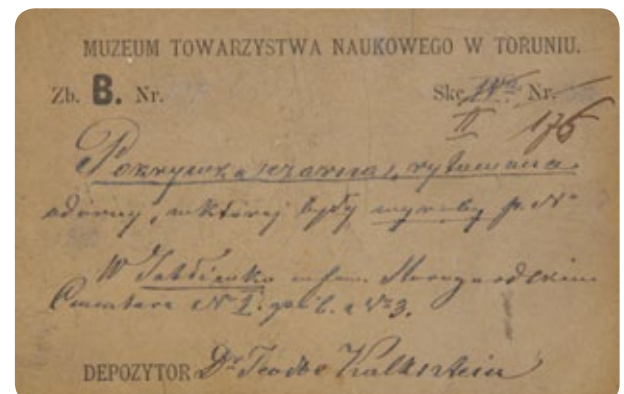 MUZEUM TOWARZYSTWA NAUKOWEGO W TORUNIU.
Zb. B. Nr. Skc. Nr.
II 176
Pokrywka czarna, rytowana
w której były wyroby p. No
W
Cmentarz No I. grób. No 3.
DEPOZYTOR Dr Teodor Kalkstein